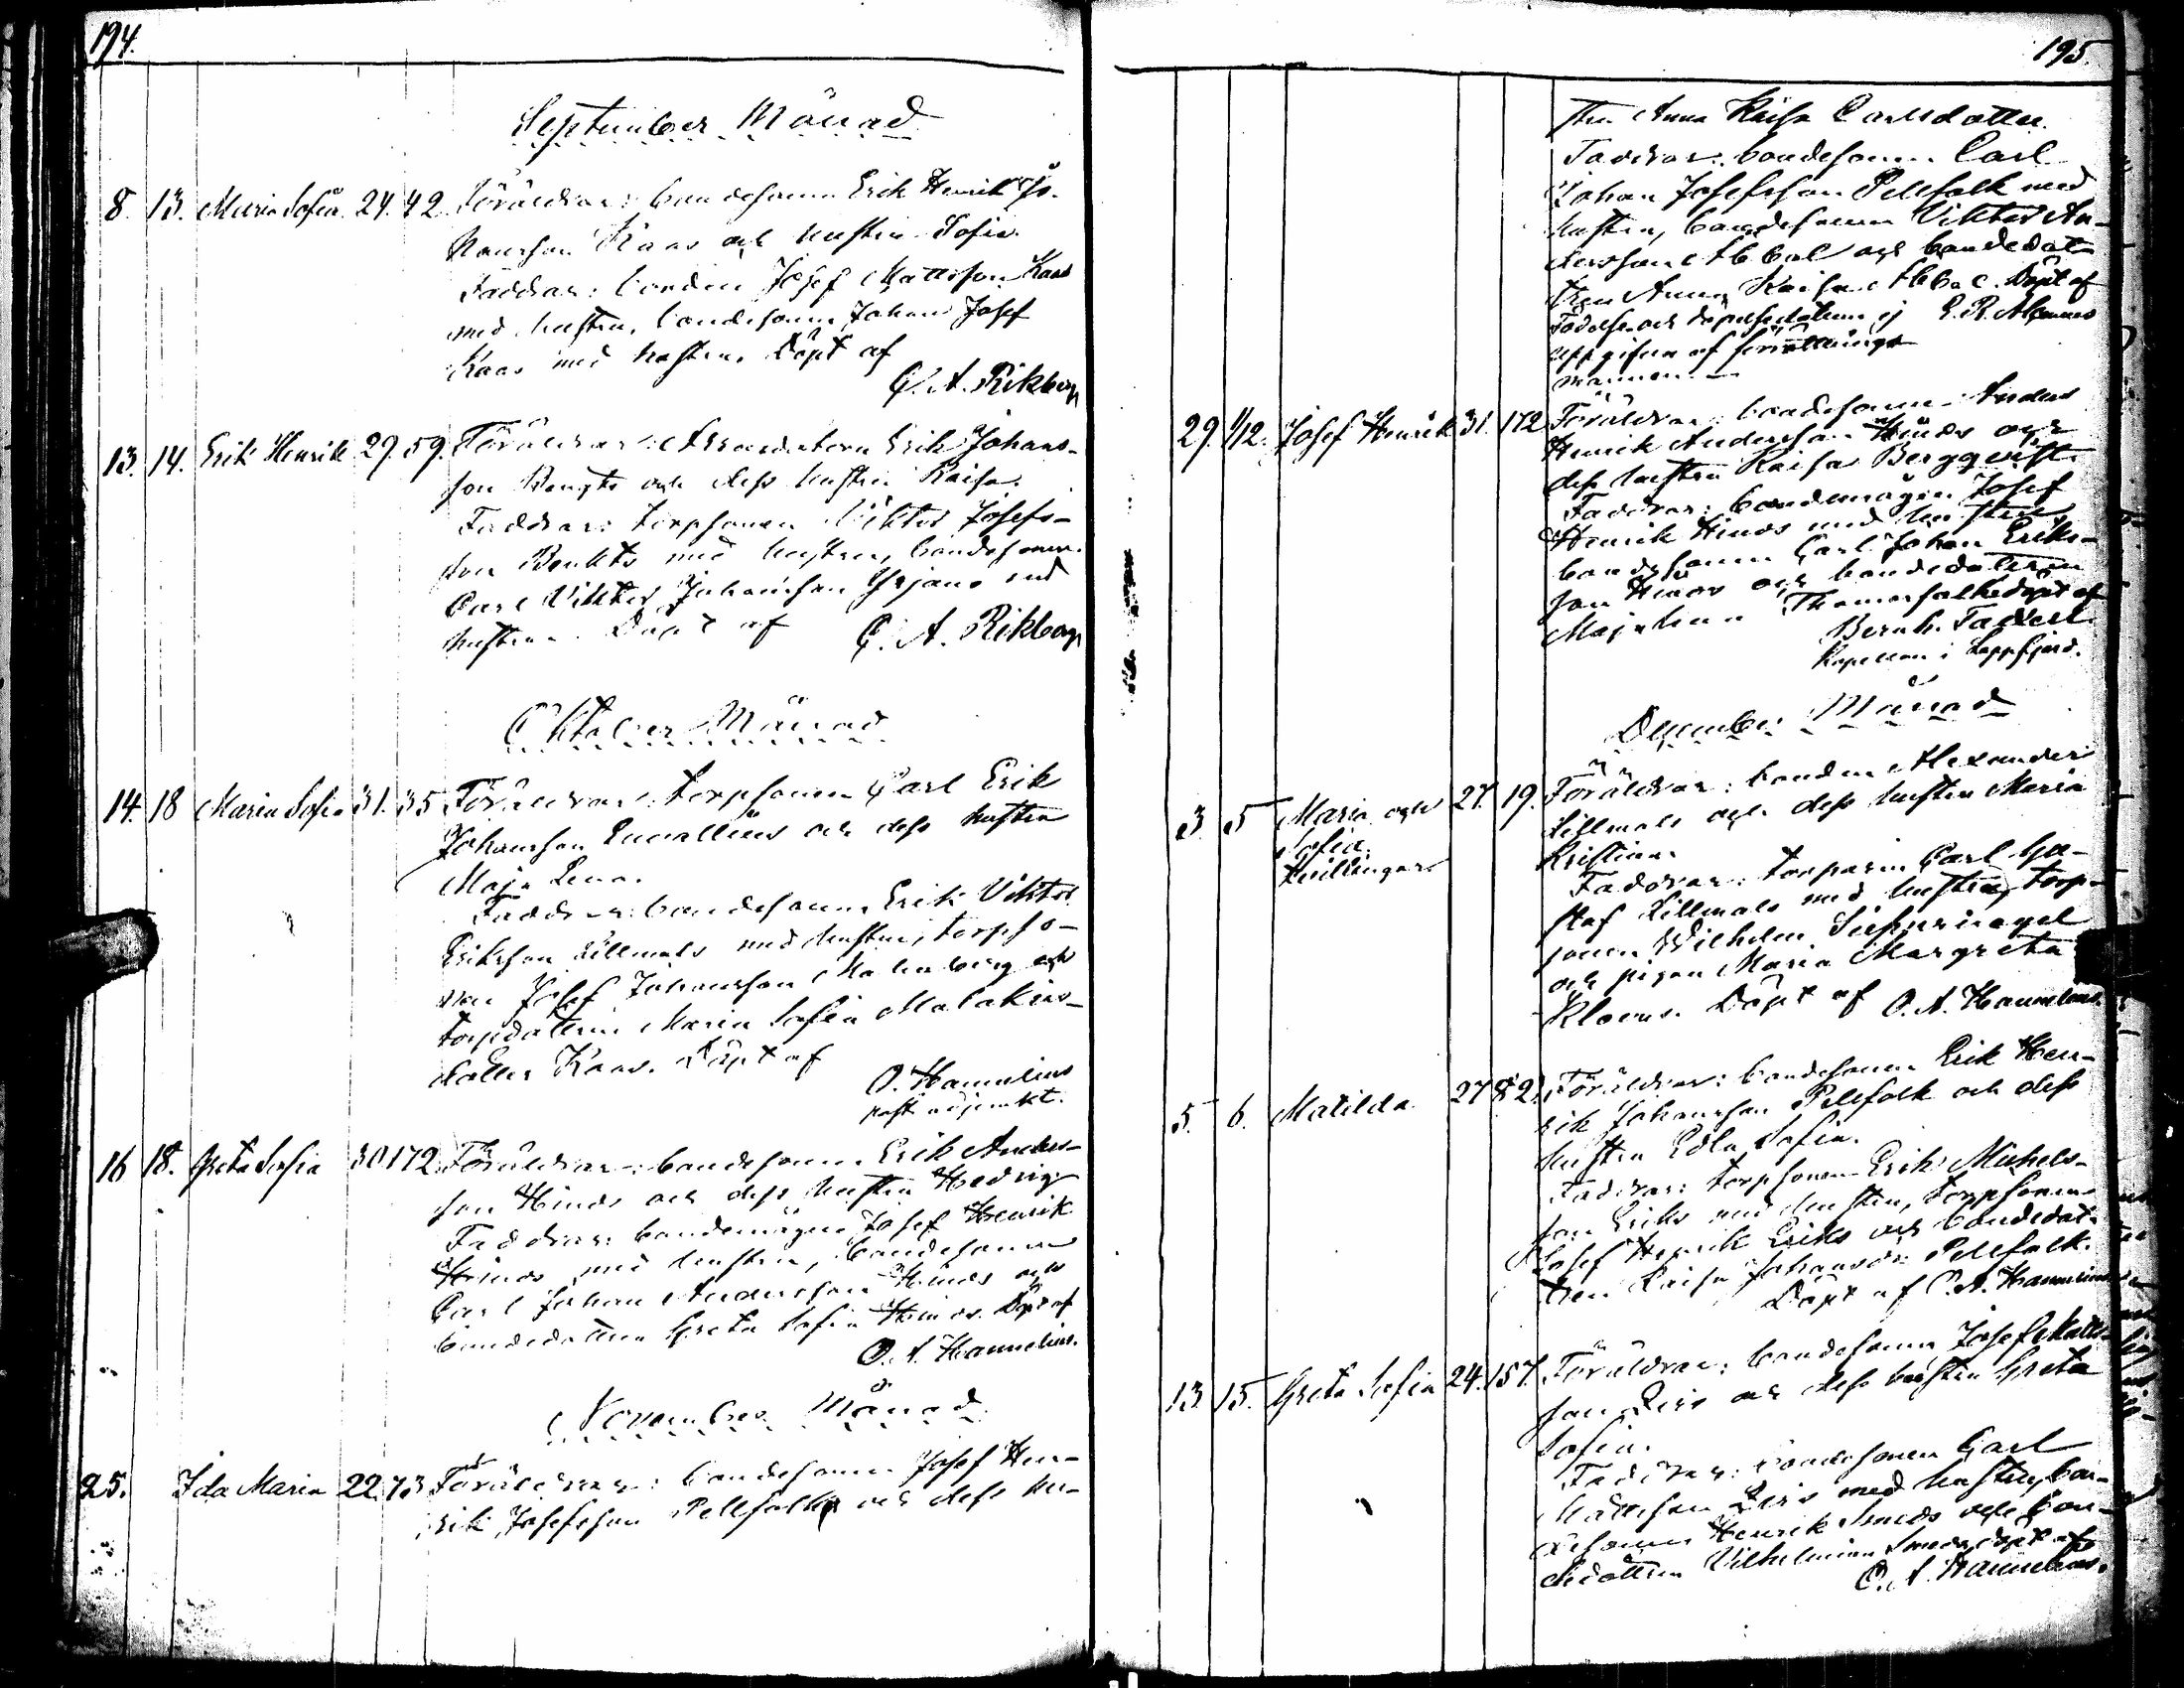 194.
September Månad
8. 13. Maria Sofia 24. 42. Föräldrar: bondesonen Erik Henrik Jo-
hansson Kaas och hustru Sofia.
Faddrar: bonden Josef Mattsson Kaas
med hustru, bondesonen Johan Josef
Kaas med hustru. Döpt af
C. A. Rikberg
13. 14. Erik Henrik 29. 59. Föräldrar: Arrendatorn Erik Johans-
son Bengts och dess hustru Kaisa.
Faddrar: torpsonen Viktor Josefs-
son Benkts med hustru, bondesonen
Carl Viktor Johansson med
hustru. Döpt af
C. A. Rikberg
Oktober Månad
14. 18 Maria Sofia 31. 35 Föräldrar: torpsonen Carl Erik
Johansson och dess hustru
Maja Lena.
Faddrar: bondesonen Erik Viktor
Eriksson Lillmals med hustru, torpso-
nen Josef Johansson Malmberg och
torpdottern Maria Sofia Malakias-
dotter Kaas. Döpt af
O. Hannelius
past. adjunkt.
16 18. Greta Sofia 30 172 Föräldrar: bondesonen Erik Anders-
son Hinds och dess hustru Hedvig
Faddrar: bondemågen Josef Henrik
Hinds med hustru, bondesonen
Carl Johan Andersson Hinds och
bondedottern Greta Sofia Hinds. Döpt af
O. A. Hannelius.
November Månad
25. Ida Maria 22. 73 Föräldrar: bondesonen Josef Hen-
rik Josefsson Pellfolk och dess hu-
195.
stru Anna Kaisa Carlsdotter.
Faddrar: bondesonen Carl
Johan Josefsson Pellfolk med
hustru, bondesonen Viktor An-
dersson Abbal och bondedot-
tren Anna Kaisa Abbal. Döpt af
Födelse och döpelsedatum ej E. R. Alcenius
uppgifven af förrättnings
mannen.
29. 1/12. Josef Henrik 31. 172 Föräldrar: bondesonen Anders
Henrik Andersson Hinds och
dess hustru Kaisa Bergqvist.
Faddrar: bondemågen Josef
Henrik Hinds med hustru
bondesonen Carl Johan Eriks-
son Hinds och bondedottern
Maja Lena Thomasfolk döpt af
Bernh.
Kapellan i Lappfjärd.
December Månad
3. 5 Maria och 27. 19. Föräldrar: bonden Alexander
Sofia
tvillingar
Lillmals och dess hustru Maria
Kristina.
Faddrar: torparen Carl Gu-
staf Lillmals med hustru, torp-
sonen Wilhelm
och pigan Maria Margreta
Klaerus. Döpt af O. A. Hannelius.
5. 6. Matilda 27 82. Föräldrar: bondesonen Erik Hen-
rik Johansson Pellfolk och dess
hustru Edla Sofia.
Faddrar: torpsonen Erik Mickels-
son Eriks med hustru, torpsonen
Josef Henrik Eriks och bondedot-
tren Kaisa Johansdr Pellfolk.
Döpt af O. A. Hannelius
13. 15. Greta Sofia 24. 157. Föräldrar: bondesonen Josef Matts-
son och dess hustru Greta
Sofia.
Faddrar: bondesonen Carl
Mattsson med hustru, bon-
desonen Henrik Smeds och bon-
dedottren Vilhelmina Smeds, döpt af
O. A. Hannelius.